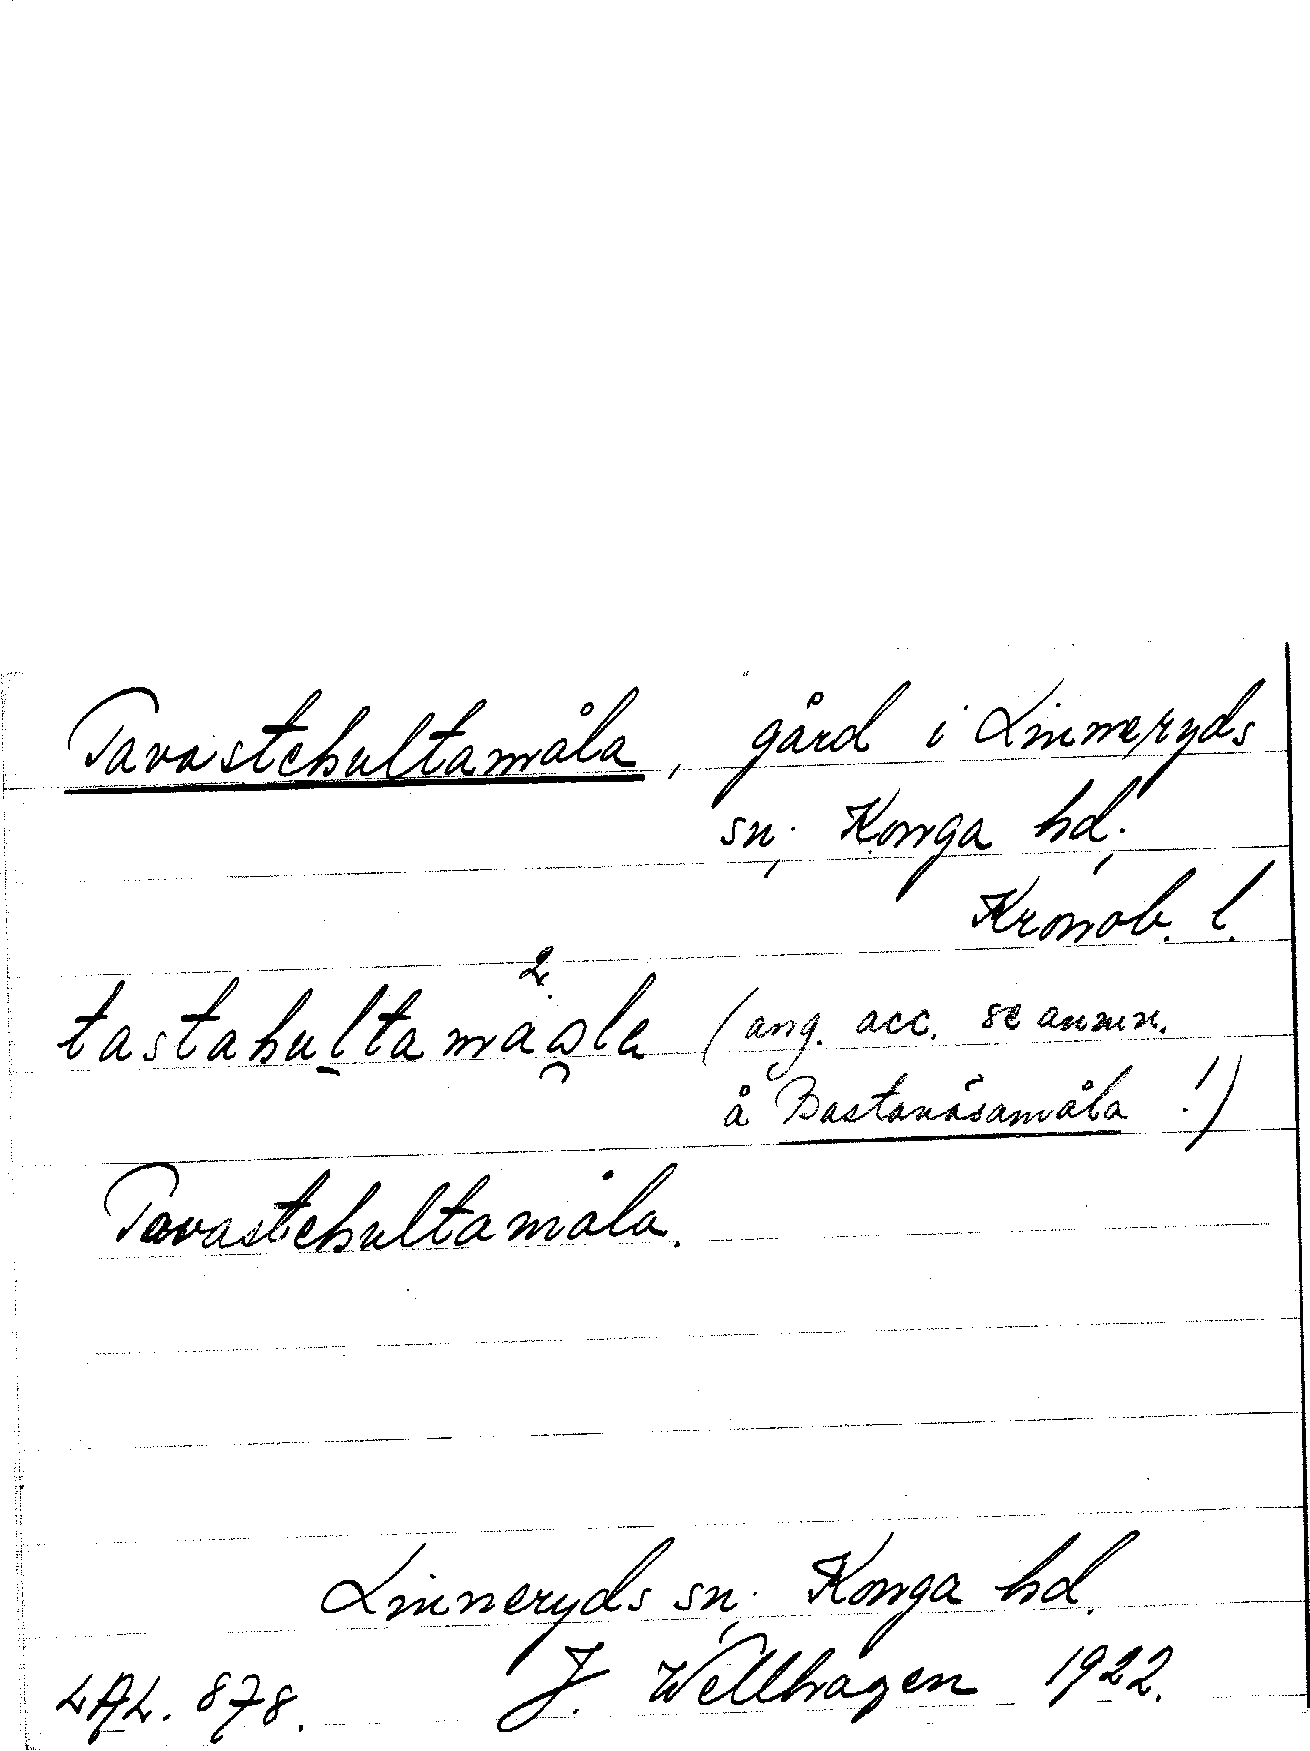 Tavastehultamåla, gård i Linneryds
sn; Konga hd;
Kronob. l.
tastahultamaola (ang. acc. se anmn.
å Bastanäsamåla !)
Tavastehultamåla.
Linneryds sn; Konga hd.
LAL. 878. J. Wellhagen 1922.